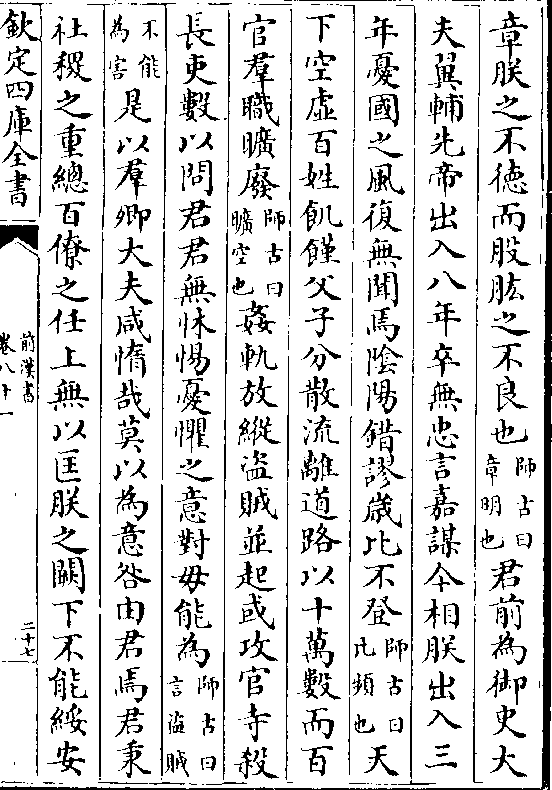 章朕之不德而股肱之不良也師古曰章明也君前為御史大
夫翼輔先帝出入八年卒無忠言嘉謀今相朕出入三
年憂國之風復無聞焉陰陽錯謬歲比不登師古曰比頻也天
下空虛百姓飢饉父子分散流離道路以十萬數而百
官羣職曠廢師古曰曠空也姦軌放縱盜賊並起或攻官寺殺
長吏數以問君君無怵惕憂懼之意對毋能為師古曰言盜賊
不能為害是以羣卿大夫咸惰哉莫以為意咎由君焉君秉
社稷之重總百僚之任上無以匡朕之闕下不能綏安
欽定四庫全書
前漢書
卷八十一
二十七